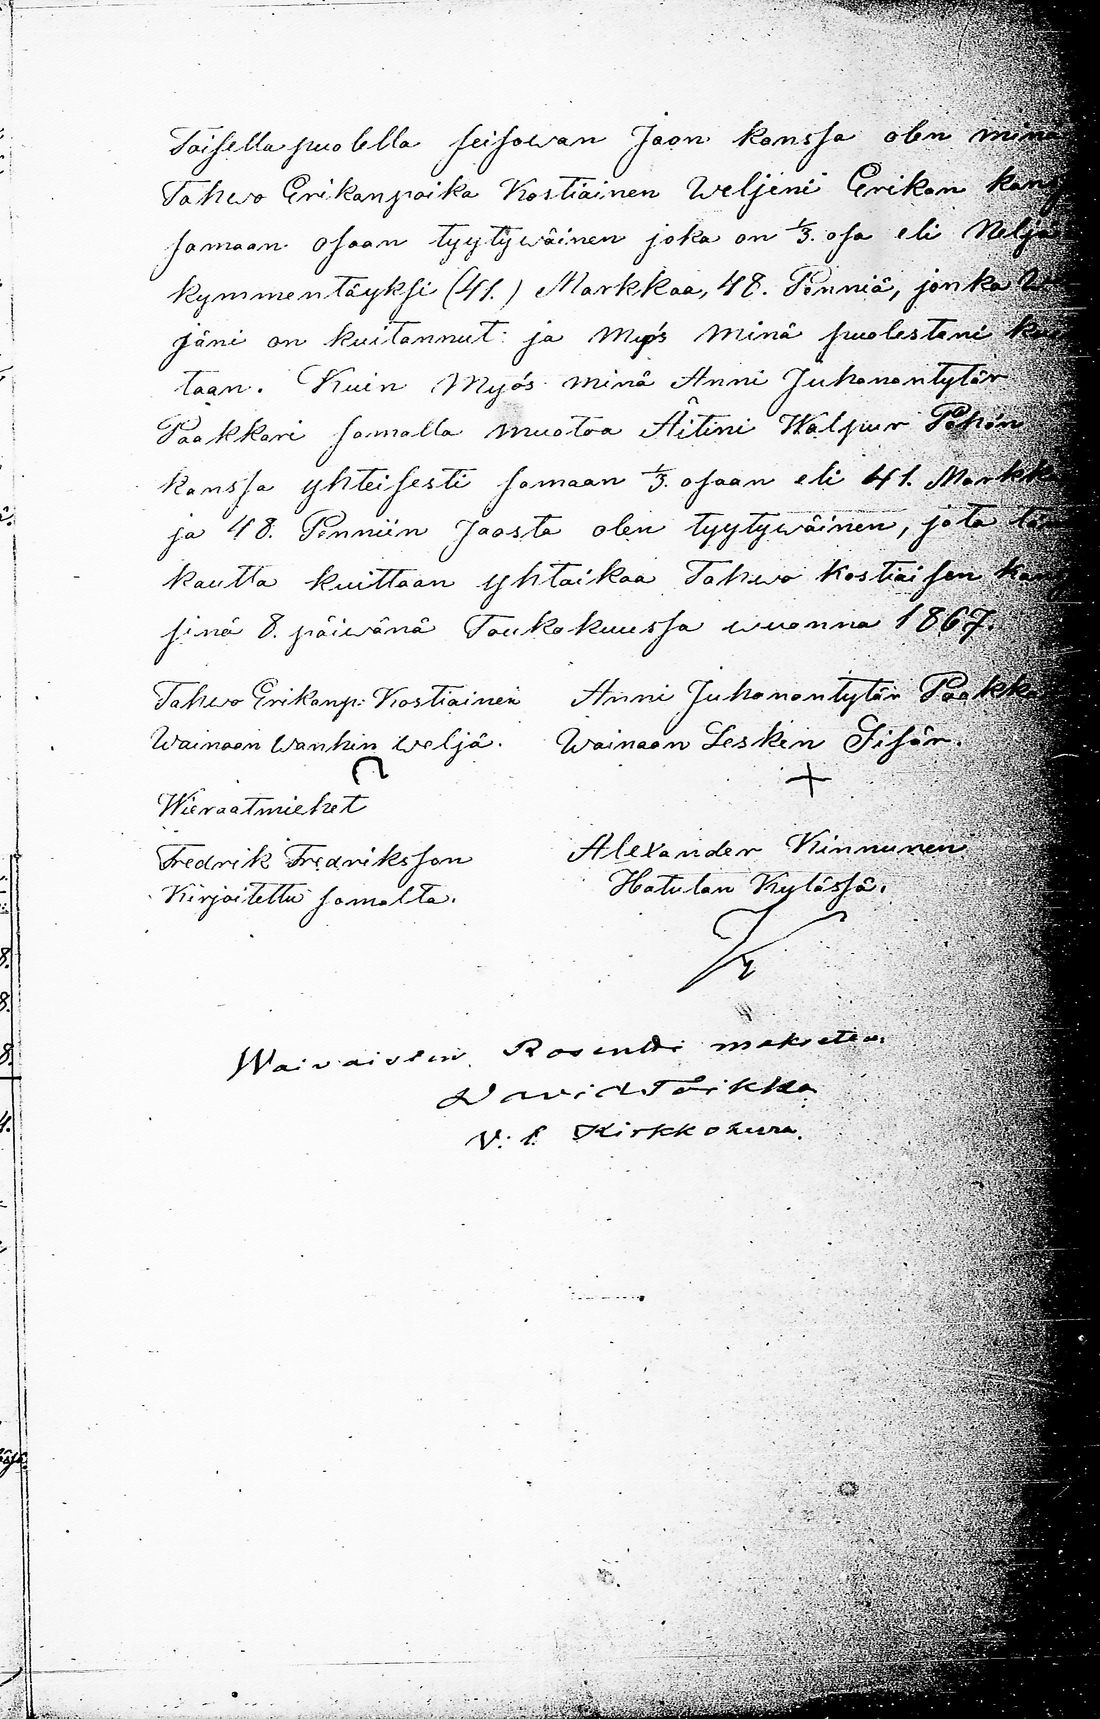 Toisella puolella seisowan Jaon kanssa olen minä
Tahwo Erikanpoika Kostiainen Weljeni Erikan kans
samaan osaan tyytywäinen joka on 1/3. osa eli Neljä
kymmentäyksi (41.) Markkaa, 48. Penniä, jonka
jäni on kuitannut: ja Myös Minä puolesteni kui
taan. Kuin Myös minä Anni Juhanantytär
Paakkari samalla muotoa Äitini Walpur Pöhön
kanssa yhteisesti samaan 1/3. osaan eli 41. Markka
ja 48. Penniin Jaosta olen tyytywäinen, jota tän
kautta kuittaan yhtaikaa Tahwo Kostiaisen kans
sinä 8. päiwänä Toukokuussa wuonna 1867.
Tahwo Erikanp: Kostiainen Anni Juhanantytär Paakka
Wainaan Wanhin Weljä. Wainaan Lesken Sisär.
Wieraatmiehet
Fredrik Fredriksson Alexander Kinnunen
Kirjoitettu samalta. Hatulan Kylässä.
Waivaisten Rosentti maksettu.
David Toikka
V: t. Kirkkoherra.